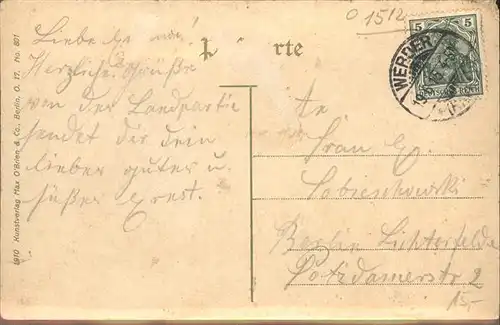 O 1512
Liebe
Herzliche Grüße
von der Landpartie
sendet dir dein
lieber guter u.
süßer Ernst.
rte
WERDER
5 5
DEUTSCHES REICH
Frau E.
Sobieschowski
Berlin Lichterfelde
Potzdamerstr 2
15,-
1910 Kunstverlag Max O'Brien & Co., Berlin, O. 17. No. 801